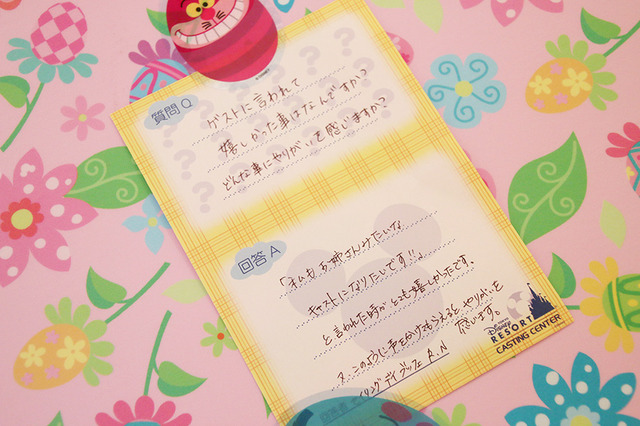 質問 Q
ゲストに言われて
嬉しかった事はなんですか?
どんな事にやりがいを感じますか?
回答 A
「私もお姉さんみたいな
キャストになりたいです!!
と言われた時がとても嬉しかったです。
又、このように声をかけてもらえるとやりがいを
感じます。
イリングデイブッフェ R.N
Tokyo
Disney
RESORT
CASTING CENTER